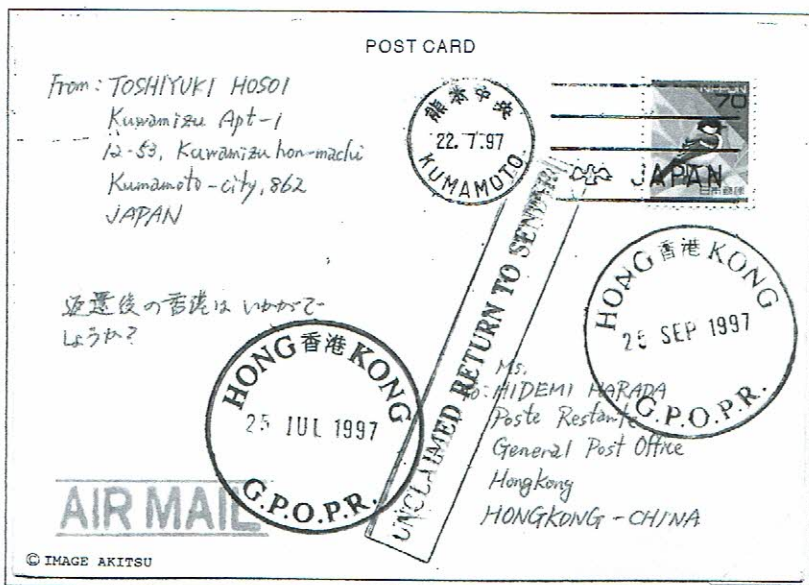 POST CARD
From: TOSHIYUKI HOSOI
Kuwamizu Apt-1
12-53, Kuwamizu hon-machi
Kumamoto-city, 862
JAPAN
熊本中央
22.7.97
KUMAMOTO
NIPPON
70
日本郵便
JAPAN
返還後の香港は いかがで
しょうか?
UNCLAIMED RETURN TO SENDER
HONG 香港 KONG
25 SEP 1997
G.P.O.P.R.
HONG 香港 KONG
25 JUL 1997
G.P.O.P.R.
Ms.
To: HIDEMI HARADA
Poste Restante
General Post Office
Hongkong
HONGKONG - CHINA
AIR MAIL
© IMAGE AKITSU